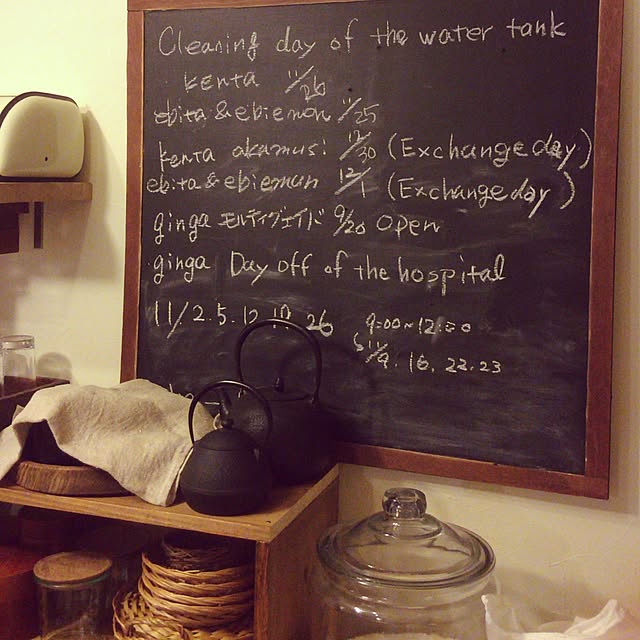 Cleaning day of the water tank
kenta 11/26
ebita & ebiemon 11/25
kenta akamusi 12/30 (Exchange day)
ebita & ebiemon 12/1 (Exchange day)
ginga モルディヴェイド 9/20 open
ginga Day off of the hospital
11/2.5.12.19.26
9:00~12:00
11/9.16.22.23